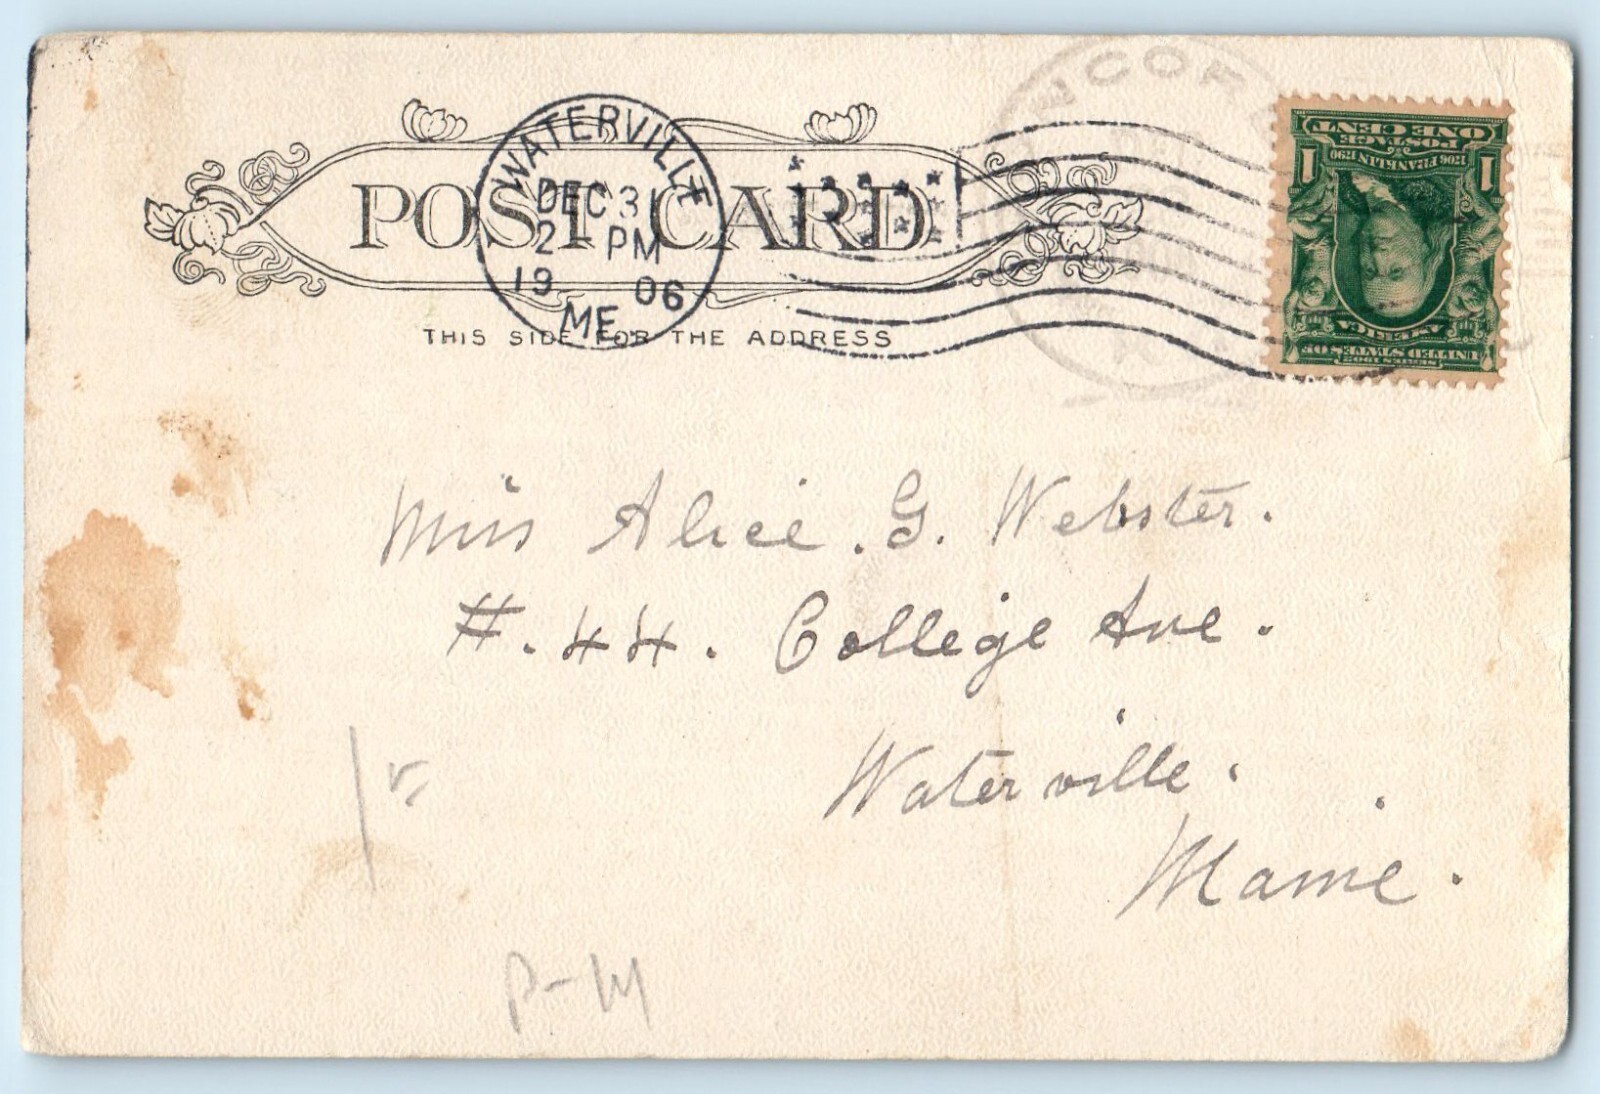 WATERVILLE
DEC 31
2 PM
19 06
ME.
POST CARD
THIS SIDE FOR THE ADDRESS
ONE CENT
POSTAGE
1706 FRANKLIN 1790
1 1
AMERICA
UNITED STATES OF
SERIES 1902
Miss Alice . G. Webster.
#. 44 . College Ave .
Waterville .
Maine .
P-M